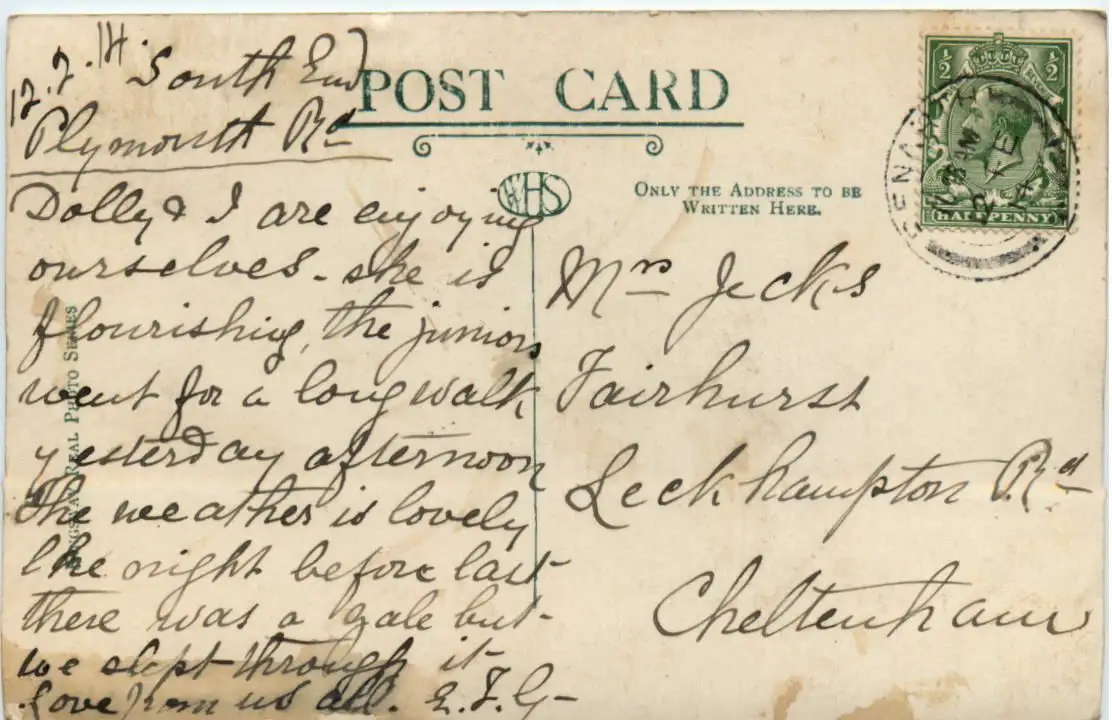 12.2.14. South End
Plymouth Rd
Dolly & I are enjoying
ourselves - she is
flourishing, the juniors
went for a long walk
yesterday afternoon
The weather is lovely
the night before last
there was a gale but
we slept through it
Love from us all. E.F.G
POST CARD
WHS
ONLY THE ADDRESS TO BE
WRITTEN HERE.
Mrs Jecks
Fairhurst
Leckhampton Rd
Cheltenham
KINGSWAY REAL PHOTO SERIES
½ ½
HALFPENNY
PENARTH